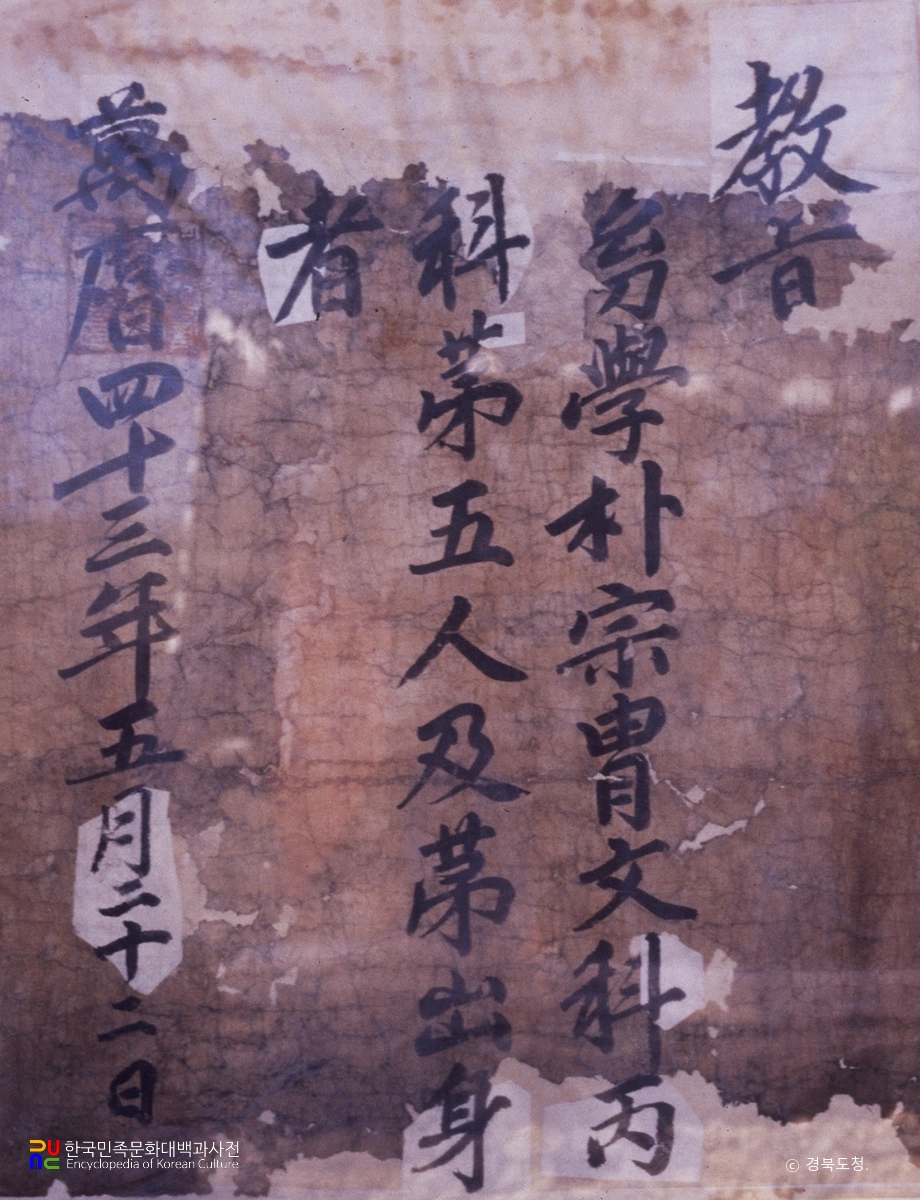 教旨
幼學朴宗胄文科丙
科第五人及第出身
者
萬曆四十三年五月二十二日
한국민족문화대백과사전
Encyclopedia of Korean Culture
ⓒ 경북도청.